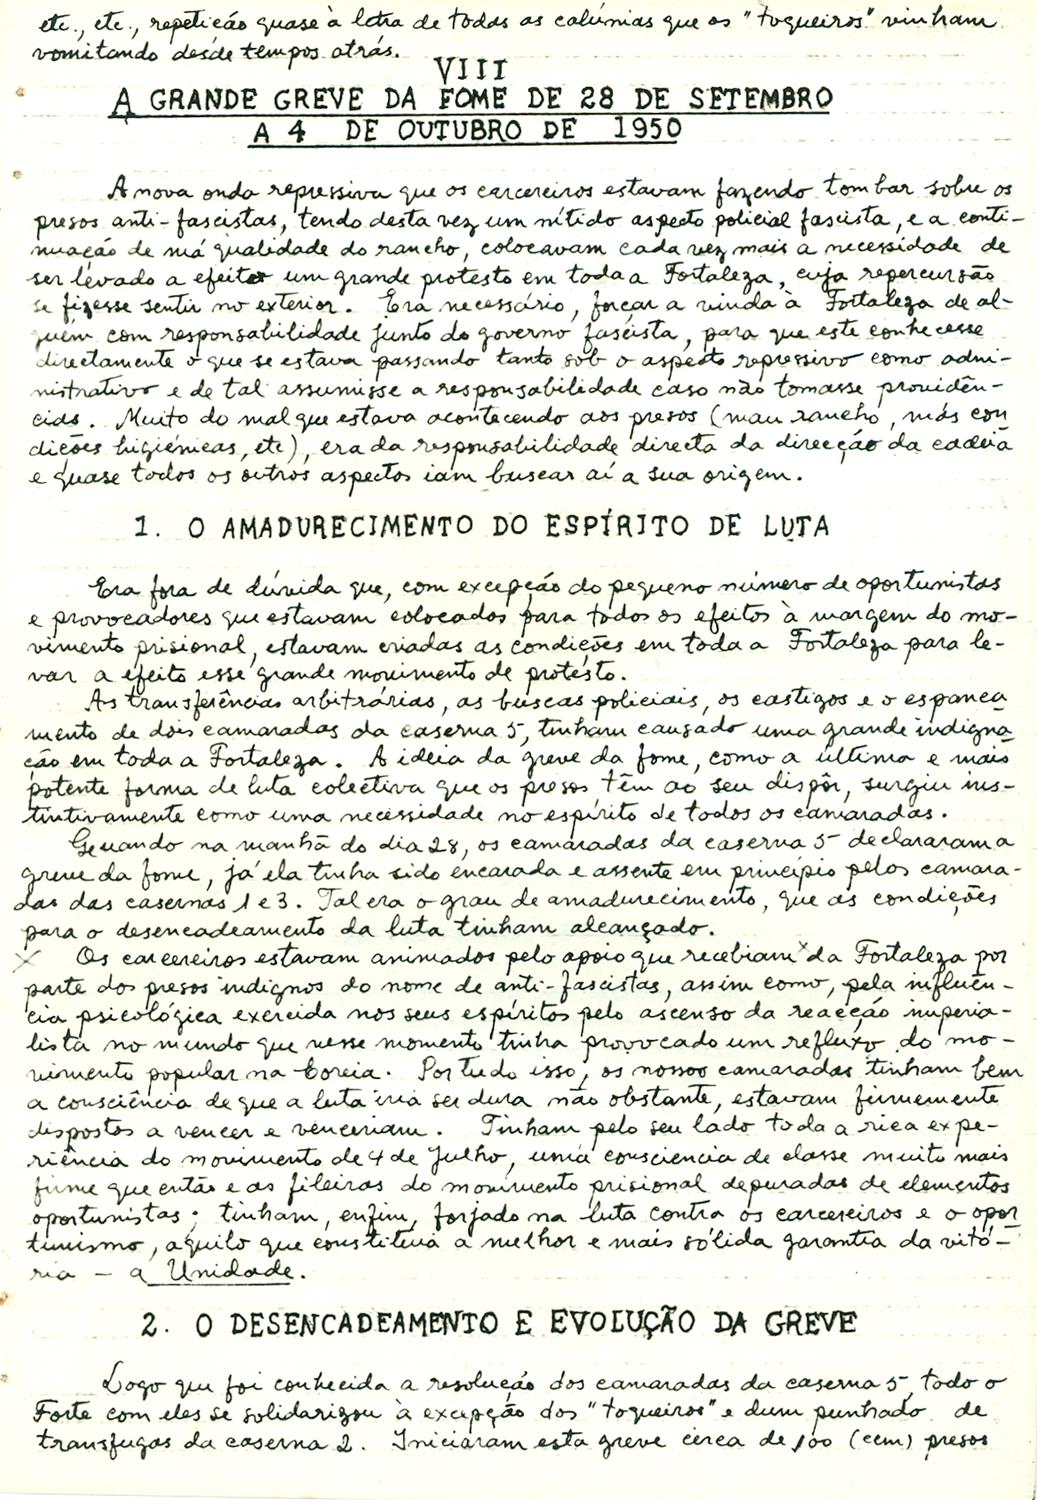 etc., etc., repetição quase à letra de todas as calúnias que os "toqueiros" vinham
vomitando desde tempos atrás.
VIII
A GRANDE GREVE DA FOME DE 28 DE SETEMBRO
A 4 DE OUTUBRO DE 1950
A nova onda repressiva que os carcereiros estavam fazendo tombar sobre os
presos anti-fascistas, tendo desta vez um nítido aspecto policial fascista, e a conti-
nuação de má qualidade do rancho, colocavam cada vez mais a necessidade de
ser levado a efeito um grande protesto em toda a Fortaleza, cuja repercursão
se fizesse sentir no exterior. Era necessário, forçar a vinda à Fortaleza de al-
guém com responsabilidade junto do governo fascista, para que este conhecesse
directamente o que se estava passando tanto sob o aspecto repressivo como admi-
nistrativo e de tal assumisse a responsabilidade caso não tomasse providên-
cias. Muito do mal que estava acontecendo aos presos (mau rancho, más con
dições higiénicas, etc), era da responsabilidade directa da direcção da cadeia
e quase todos os outros aspectos iam buscar aí a sua origem.
1. O AMADURECIMENTO DO ESPÍRITO DE LUTA
Era fora de dúvida que, com excepção do pequeno número de oportunistas
e provocadores que estavam colocados para todos os efeitos à margem do mo-
vimento prisional, estavam criadas as condições em toda a Fortaleza para le-
var a efeito esse grande movimento de protesto.
As transferências arbitrárias, as buscas policiais, os castigos e o espanca
mento de dois camaradas da caserna 5, tinham causado uma grande indigna
ção em toda a Fortaleza. A ideia da greve da fome, como a última e mais
potente forma de luta colectiva que os presos têm ao seu dispôr, surgiu ins-
tintivamente como uma necessidade no espírito de todos os camaradas.
Quando na manhã do dia 28, os camaradas da caserna 5 declararam a
greve da fome, já ela tinha sido encarada e assente em princípio pelos camara-
das das casernas 1 e 3. Tal era o grau de amadurecimento, que as condições
para o desencadeamento da luta tinham alcançado.
X Os carcereiros estavam animados pelo apoio que recebiam x da Fortaleza por
parte dos presos indignos do nome de anti-fascistas, assim como, pela influên-
cia psicológica exercida nos seus espíritos pelo ascenso da reacção imperia-
lista no mundo que nesse momento tinha provocado um refluxo do mo-
vimento popular na Coreia. Por tudo isso, os nossos camaradas tinham bem
a consciência de que a luta iria ser dura não obstante, estavam firmemente
dispostos a vencer e venceriam. Tinham pelo seu lado toda a rica expe-
riência do movimento de 4 de Julho, uma consciencia de classe muito mais
firme que então e as fileiras do movimento prisional depuradas de elementos
oportunistas; tinham, enfim, forjado na luta contra os carcereiros e o opor
tunismo, aquilo que constituia a melhor e mais sólida garantia da vitó-
ria - a Unidade.
2. O DESENCADEAMENTO E EVOLUÇÃO DA GREVE
Logo que foi conhecida a resolução dos camaradas da caserna 5, todo o
Forte com eles se solidarizou à excepção dos "toqueiros" e dum punhado de
transfugas da caserna 2. Iniciaram esta greve cerca de 100 (cem) presos